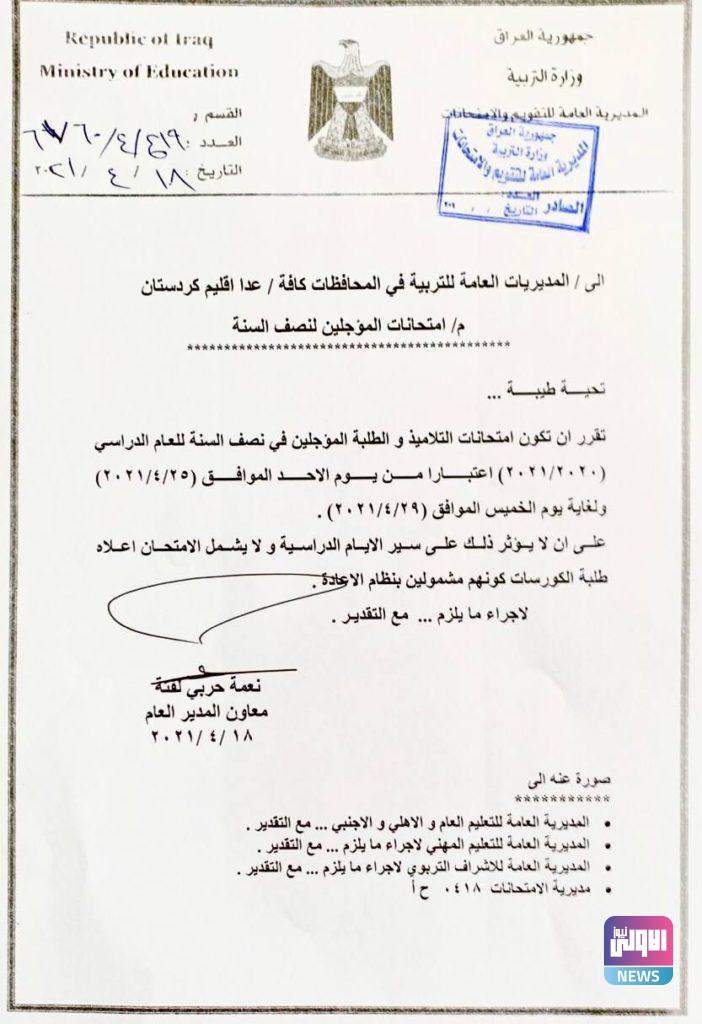 Republic of Iraq
Ministry of Education
جمهورية العراق
وزارة التربية
المديرية العامة للتقويم والامتحانات
القسم ,
العدد :
التاريخ : ١٨ / ٤ / ٢٠٢١
جمهورية العراق
وزارة التربية
المديرية العامة للتقويم والامتحانات
العدد :
الصادر التاريخ / / ٢٠١
الى / المديريات العامة للتربية في المحافظات كافة / عدا اقليم كردستان
م/ امتحانات المؤجلين لنصف السنة
*******************************************
تحيـــة طيبـــة ...
تقرر ان تكون امتحانات التلاميذ و الطلبة المؤجلين في نصف السنة للعام الدراسي
(٢٠٢١/٢٠٢٠) اعتبـــارا مـــن يـــوم الاحـــد الموافـــق (٢٠٢١/٤/٢٥)
ولغاية يوم الخميس الموافق (٢٠٢١/٤/٢٩) .
على ان لا يؤثر ذلك على سير الايام الدراسية و لا يشمل الامتحان اعلاه
طلبة الكورسات كونهم مشمولين بنظام الاعادة .
لاجراء ما يلزم ... مع التقدير .
نعمة حربي لفتة
معاون المدير العام
٢٠٢١/٤/١٨
صورة عنه الى
***********
• المديرية العامة للتعليم العام و الاهلي و الاجنبي ... مع التقدير .
• المديرية العامة للتعليم المهني لاجراء ما يلزم ... مع التقدير .
• المديرية العامة للاشراف التربوي لاجراء ما يلزم ... مع التقدير .
• مديرية الامتحانات ٠٤١٨ ح أ
الاولى نيوز
NEWS